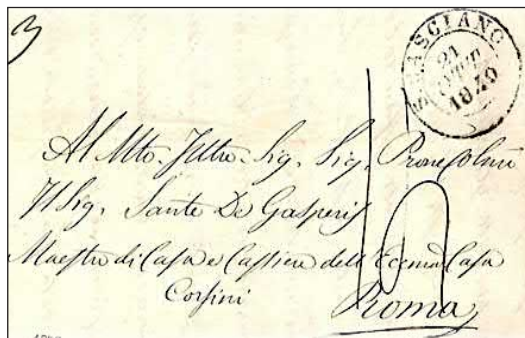 3
CASCIANO
21
Al Mto. Illtre. Sig. Sig. Prone Colmo
Il Sig. Sante De Gasperis
Maestro di Casa e Cassiere dell'Eccma Casa
Corsini
Roma